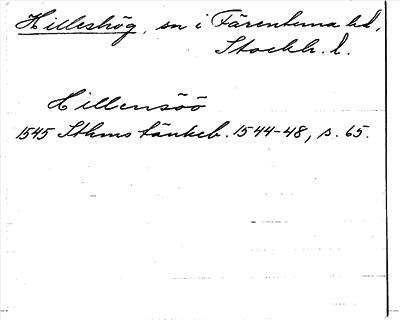 Hilleshög, sn i Färentuna hd,
Stockh. l.
Hillensöö
1545 Sthms tänkeb. 1544-48, s. 65.